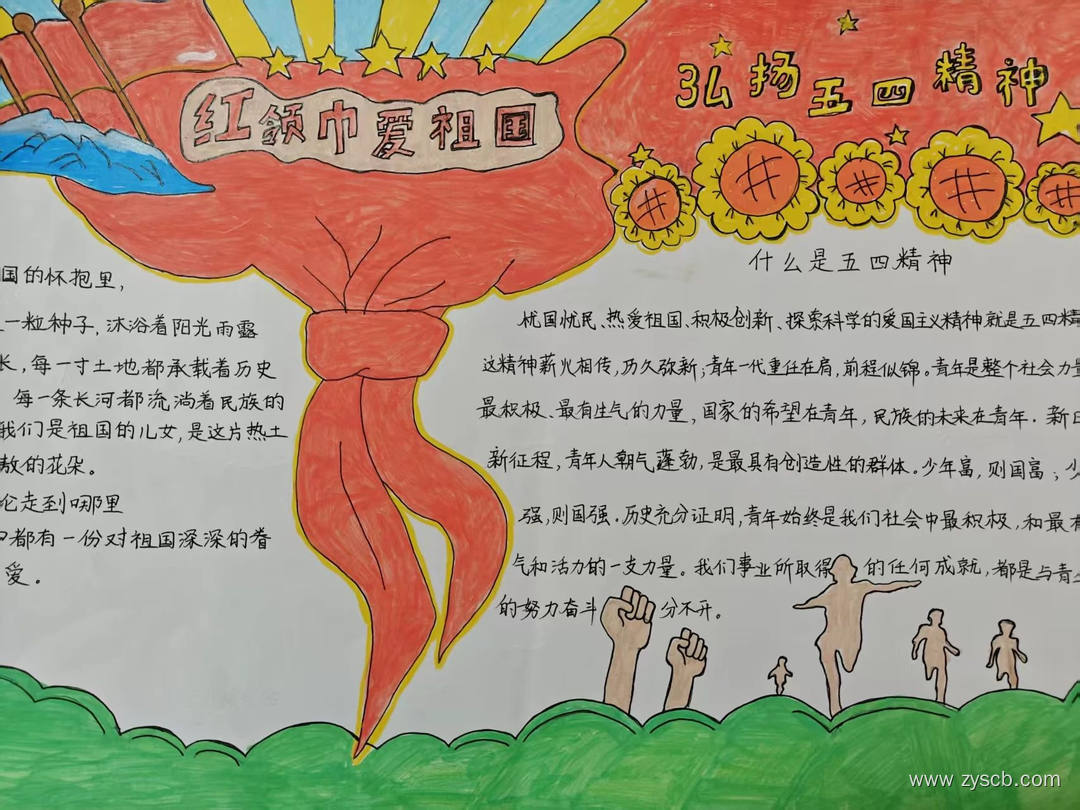 红领巾爱祖国
弘扬五四精神
国的怀抱里,
一粒种子,沐浴着阳光雨露
长,每一寸土地都承载着历史
每一条长河都流淌着民族的
我们是祖国的儿女,是这片热土
放的花朵。
论走到哪里
都有一份对祖国深深的眷
爱。
什么是五四精神
忧国忧民、热爱祖国、积极创新、探索科学的爱国主义精神就是五四精
这精神薪火相传,历久弥新;青年一代重任在肩,前程似锦。青年是整个社会力量
最积极、最有生气的力量,国家的希望在青年,民族的未来在青年.新
新征程,青年人朝气蓬勃,是最具有创造性的群体。少年富,则国富;少
强,则国强.历史充分证明,青年始终是我们社会中最积极,和最有
气和活力的一支力量。我们事业所取得的任何成就,都是与青
的努力奋斗分不开。
www.zyscb.com